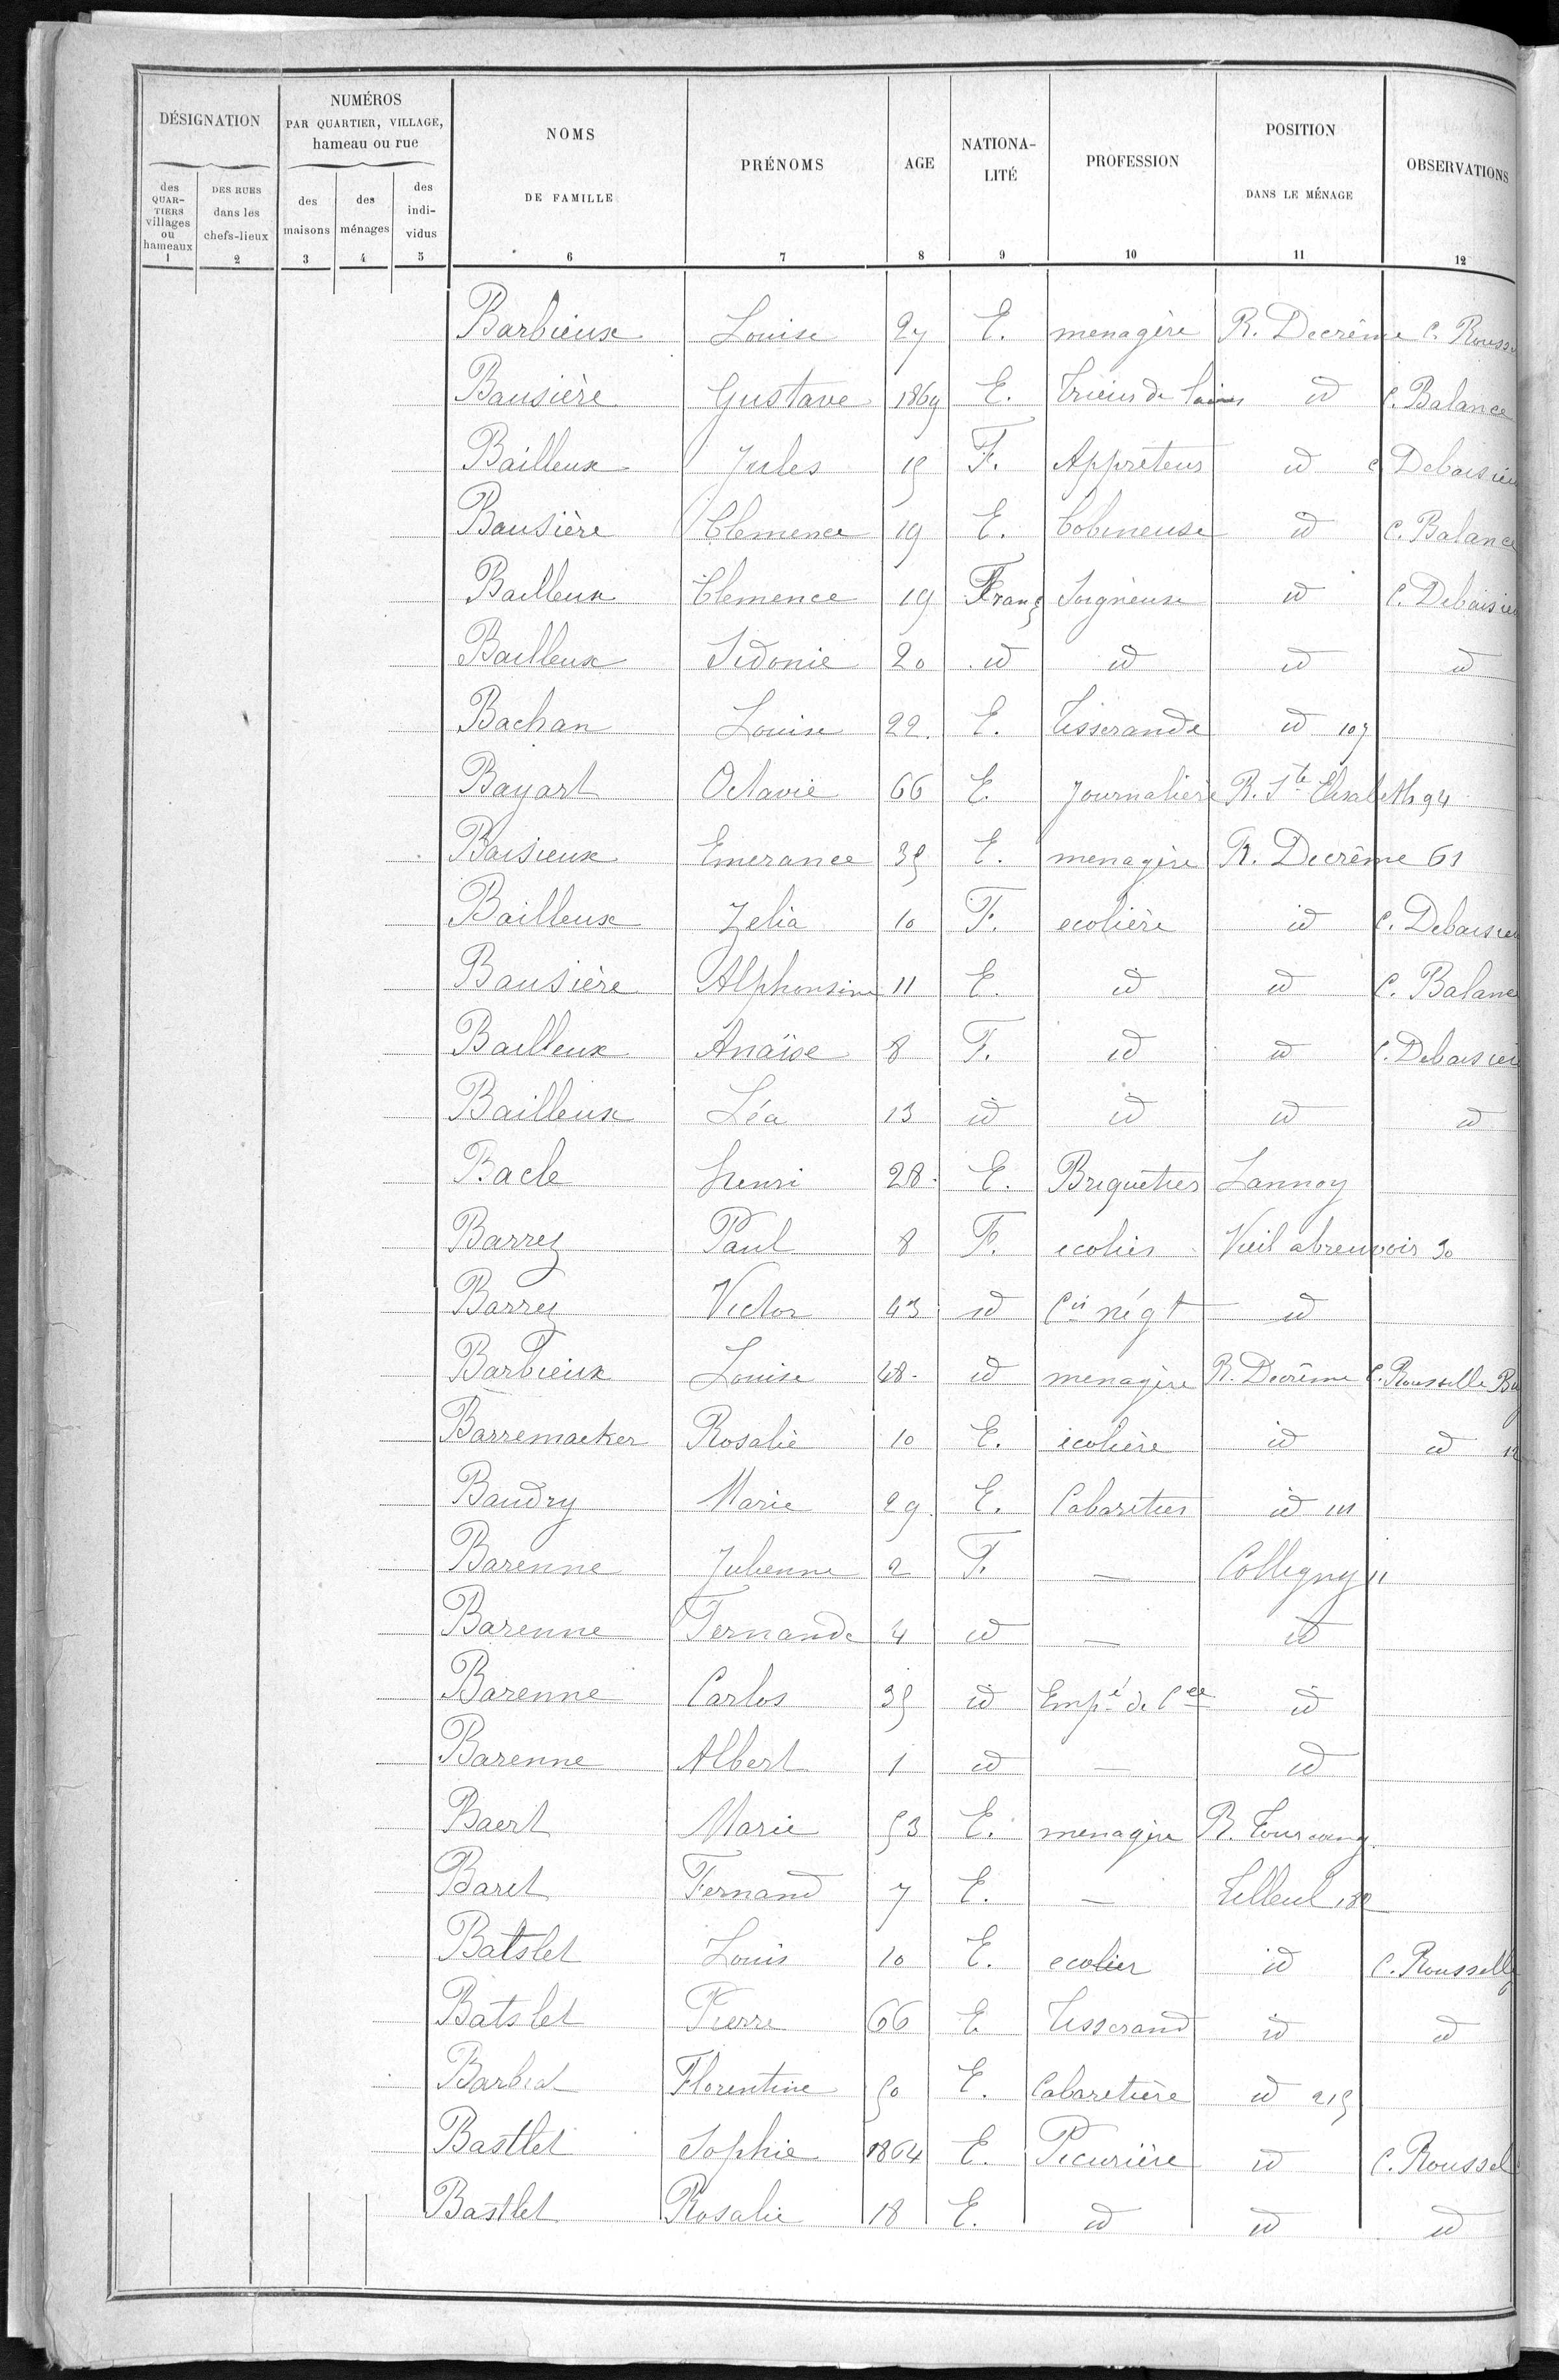 DÉSIGNATION NUMÉROS PAR QUARTIER, VILLAGE, hameau ou rue NOMS DE FAMILLE PRÉNOMS AGE NATIONA-LITÉ PROFESSION POSITION DANS LE MÉNAGE OBSERVATIONS
des QUAR-TIERS villages ou hameaux DES RUES dans les chefs-lieux des maisons des ménages des indi-vidus
1 2 3 4 5 6 7 8 9 10 11 12
Barbieux Louise 27 E. menagère R. Decrême C. Rouss
Bausière Gustave 1869 E. Trieur de laines id C. Balance
Bailleux Jules 15 F. Appréteur id c Debaisieu
Bausière Clemence 19 E. bobineuse id C. Balance
Bailleux Clemence 19 Franç Soigneuse id C. Debaisieu
Bailleux Sidonie 20 id id id id
Bachan Louise 22. E. Tisserande id 107
Bayart Octavie 66 E. Journalière R. Ste Elisabeth 94
Baisieux Emerance 35 E. menagère R. Decrême 61
Bailleux Zelia 10 F. ecolière id C. Debaisieu
Bausière Alphonsine 11 E. id id C. Balance
Bailleux Anaïse 8 F. id id C. Debaisieu
Bailleux Léa 13 id id id id
Bacle henri 28. E. Briquetier Lannoy
Barrez Paul 8 F. ecolier Vieil abreuvoir 30
Barrez Victor 43 id négt id
Barbieux Louise 48. id menagère R. Decrême C. Rousselle
Barremacker Rosalie 10 E. écolière id id 12
Baudry Marie 29 E. Cabaretier id 111
Barenne Julienne 2 F. — Colligny 11
Barenne Fernande 4 id — id
Barenne Carlos 35 id Empé de Cce id
Barenne Albert 1 id — id
Baert Marie 53 E. menagère R. Tourcoing
Baret Fernand 7 E. — Tilleul 182
Batslet Louis 10 E. ecolier id C. Rousselle
Batslet Pierre 66 E Tisserand id id
Florentine 50 E. Cabaretière id 215
Bastlet Sophie 1864 E. Picurière id C. Roussel
Bastlet Rosalie 18 E. id id id